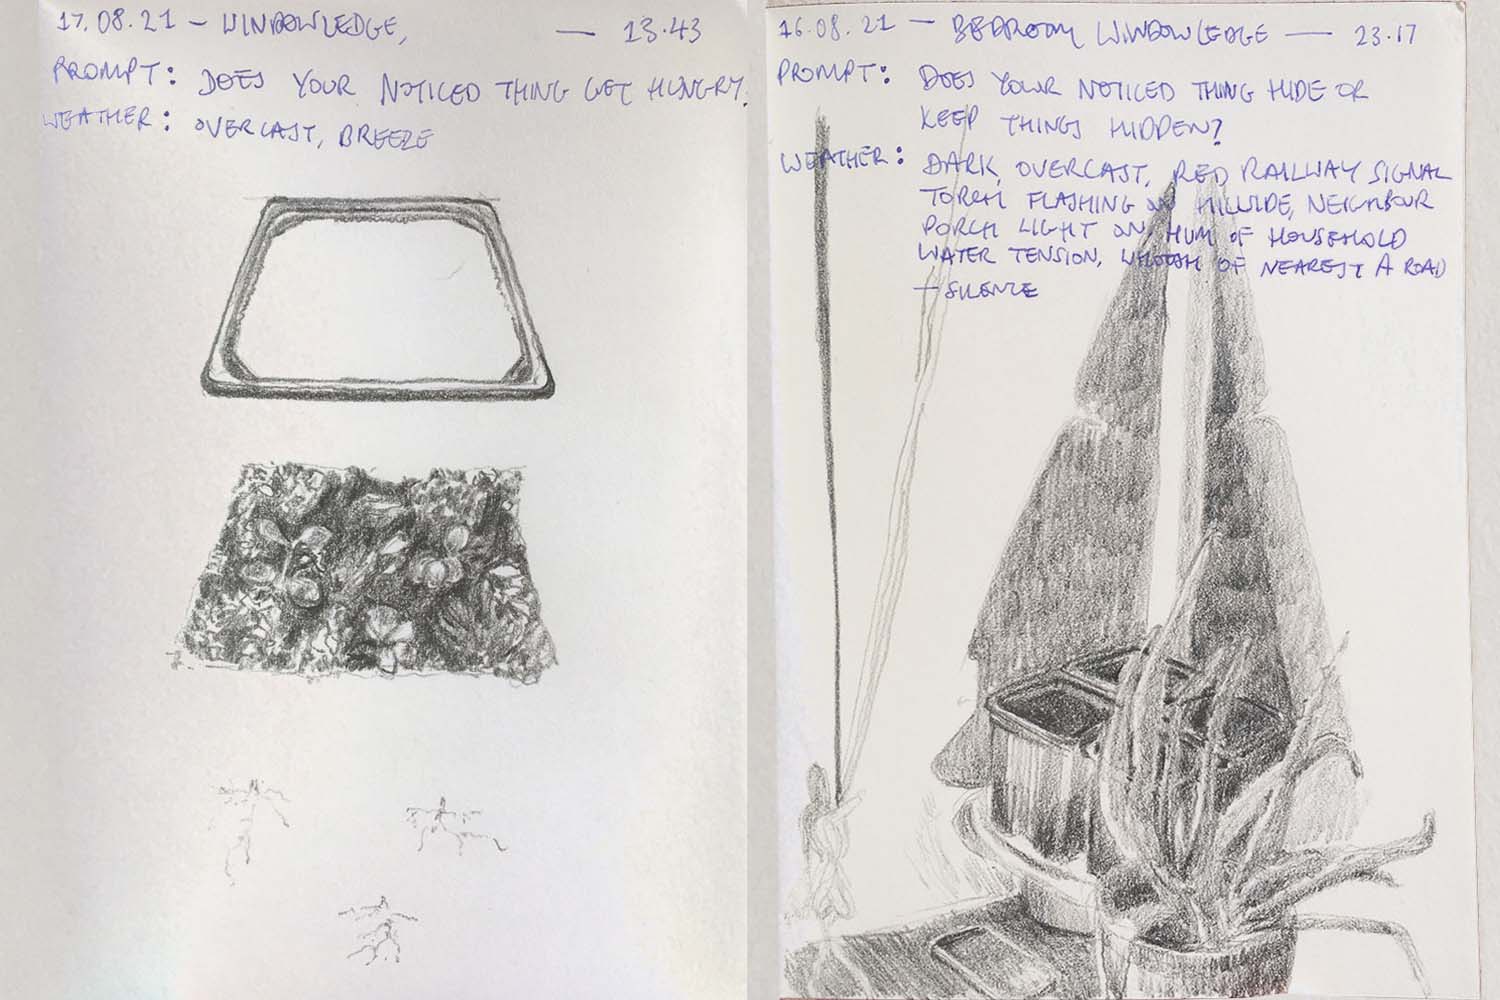 17.08.21 - WINDOWLEDGE, — 13.43
PROMPT: DOES YOUR NOTICED THING GET HUNGRY.
WEATHER: OVERCAST, BREEZE
16.08.21 — BEDROOM WINDOWLEDGE — 23.17
PROMPT: DOES YOUR NOTICED THING HIDE OR
KEEP THINGS HIDDEN?
WEATHER: DARK, OVERCAST, RED RAILWAY SIGNAL
TORCH FLASHING ON HILLSIDE, NEIGHBOUR
PORCH LIGHT ON, HUM OF HOUSEHOLD
WATER TENSION, WHOOSH OF NEAREST A ROAD
— SILENCE